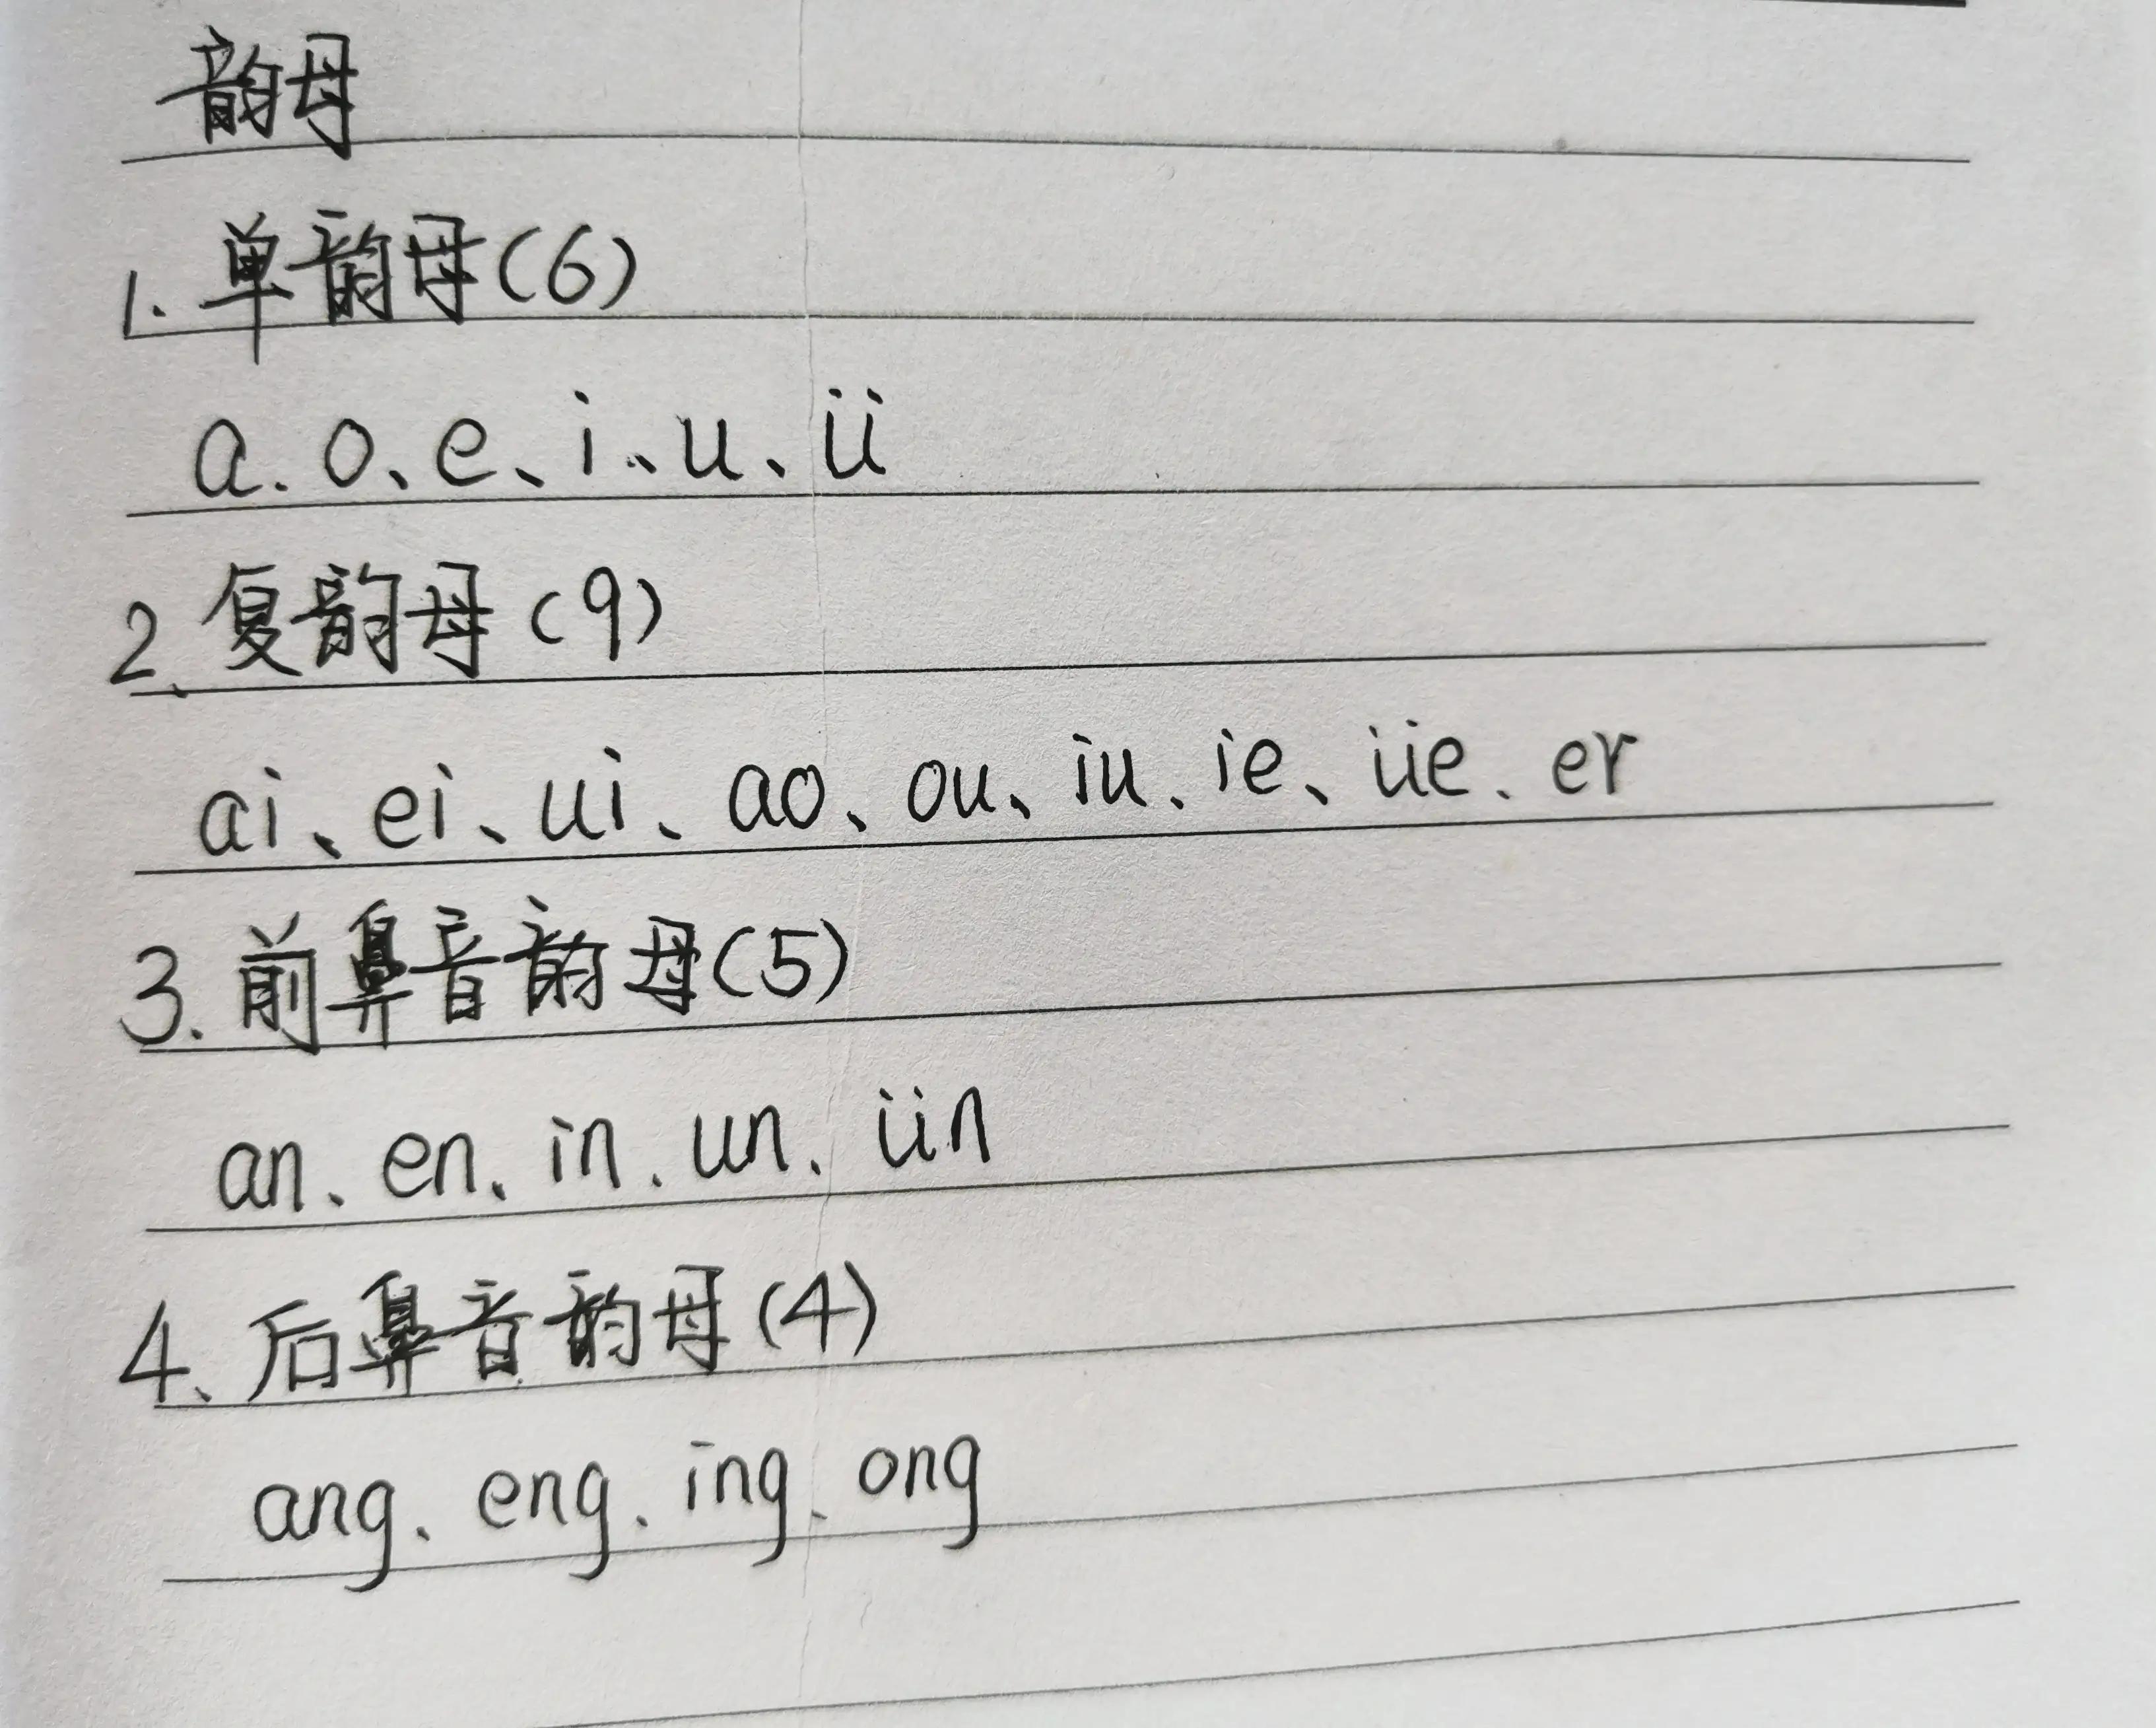 韵母
1.单韵母(6)
a.o、e、i、u、ü
2、复韵母(9)
ai、ei、ui、ao、ou、iu、ie、üe、er
3.前鼻音韵母(5)
an、en、in、un、ün
4、后鼻音韵母(4)
ang、eng、ing、ong